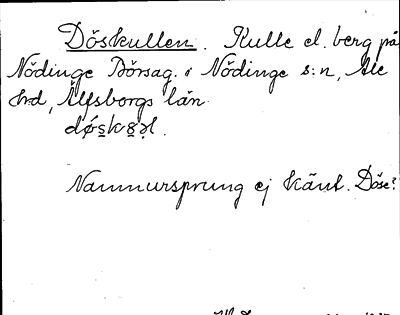 Döskullen. Kulle el. berg på
Nödinge Börsag. i Nödinge s:n, Ale
hd, Älfsborgs län.
Namnursprung ej känt. Döse?